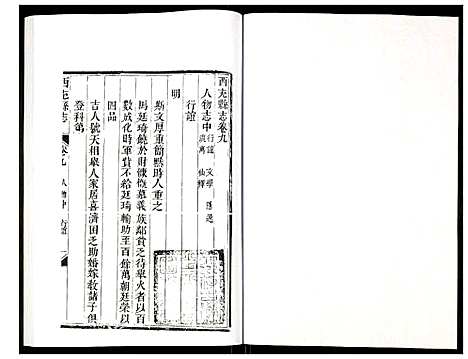 西充縣志卷九
人物志中 行誼 文學 隱逸 流寓 仙釋
行誼
明
斯文厚重簡默時人重之
馬廷琦饒於財慷慨慕義族鄰貧乏待舉火者以百
數成化時軍貲不給廷琦輸助至百餘萬朝廷榮以
四品
吉人號天相舉人家居喜濟困乏助婚嫁教諸子俱
登科第
西充縣志 卷九 人物中 行誼